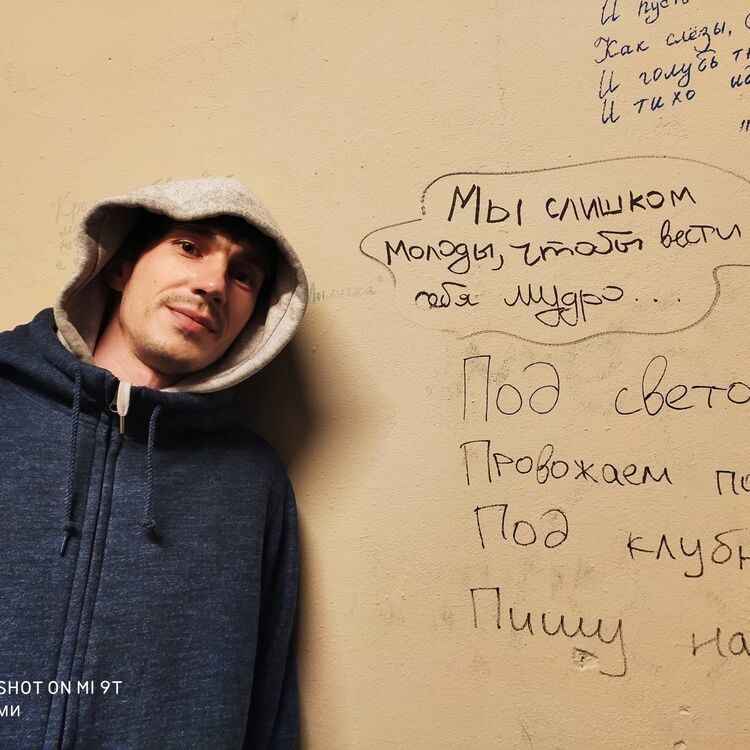 И пусть
Как слёзы,
И голубь
И тихо
Мы слишком
молоды, чтобы вести
себя мудро...
Под свето
Провожаем по
Под клубн
Пишу на
SHOT ON MI 9T